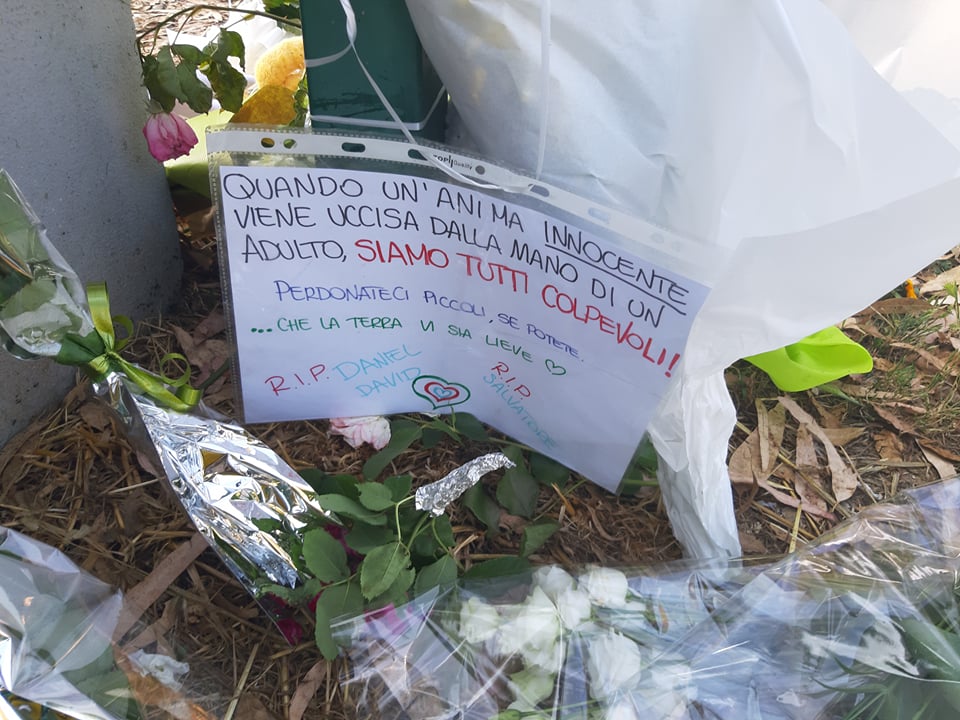 QUANDO UN'ANIMA INNOCENTE
VIENE UCCISA DALLA MANO DI UN
ADULTO, SIAMO TUTTI COLPEVOLI!!
PERDONATECI PICCOLI, SE POTETE.
...CHE LA TERRA VI SIA LIEVE
R.I.P. DANIEL
DAVID
R.I.P
SALVATORE